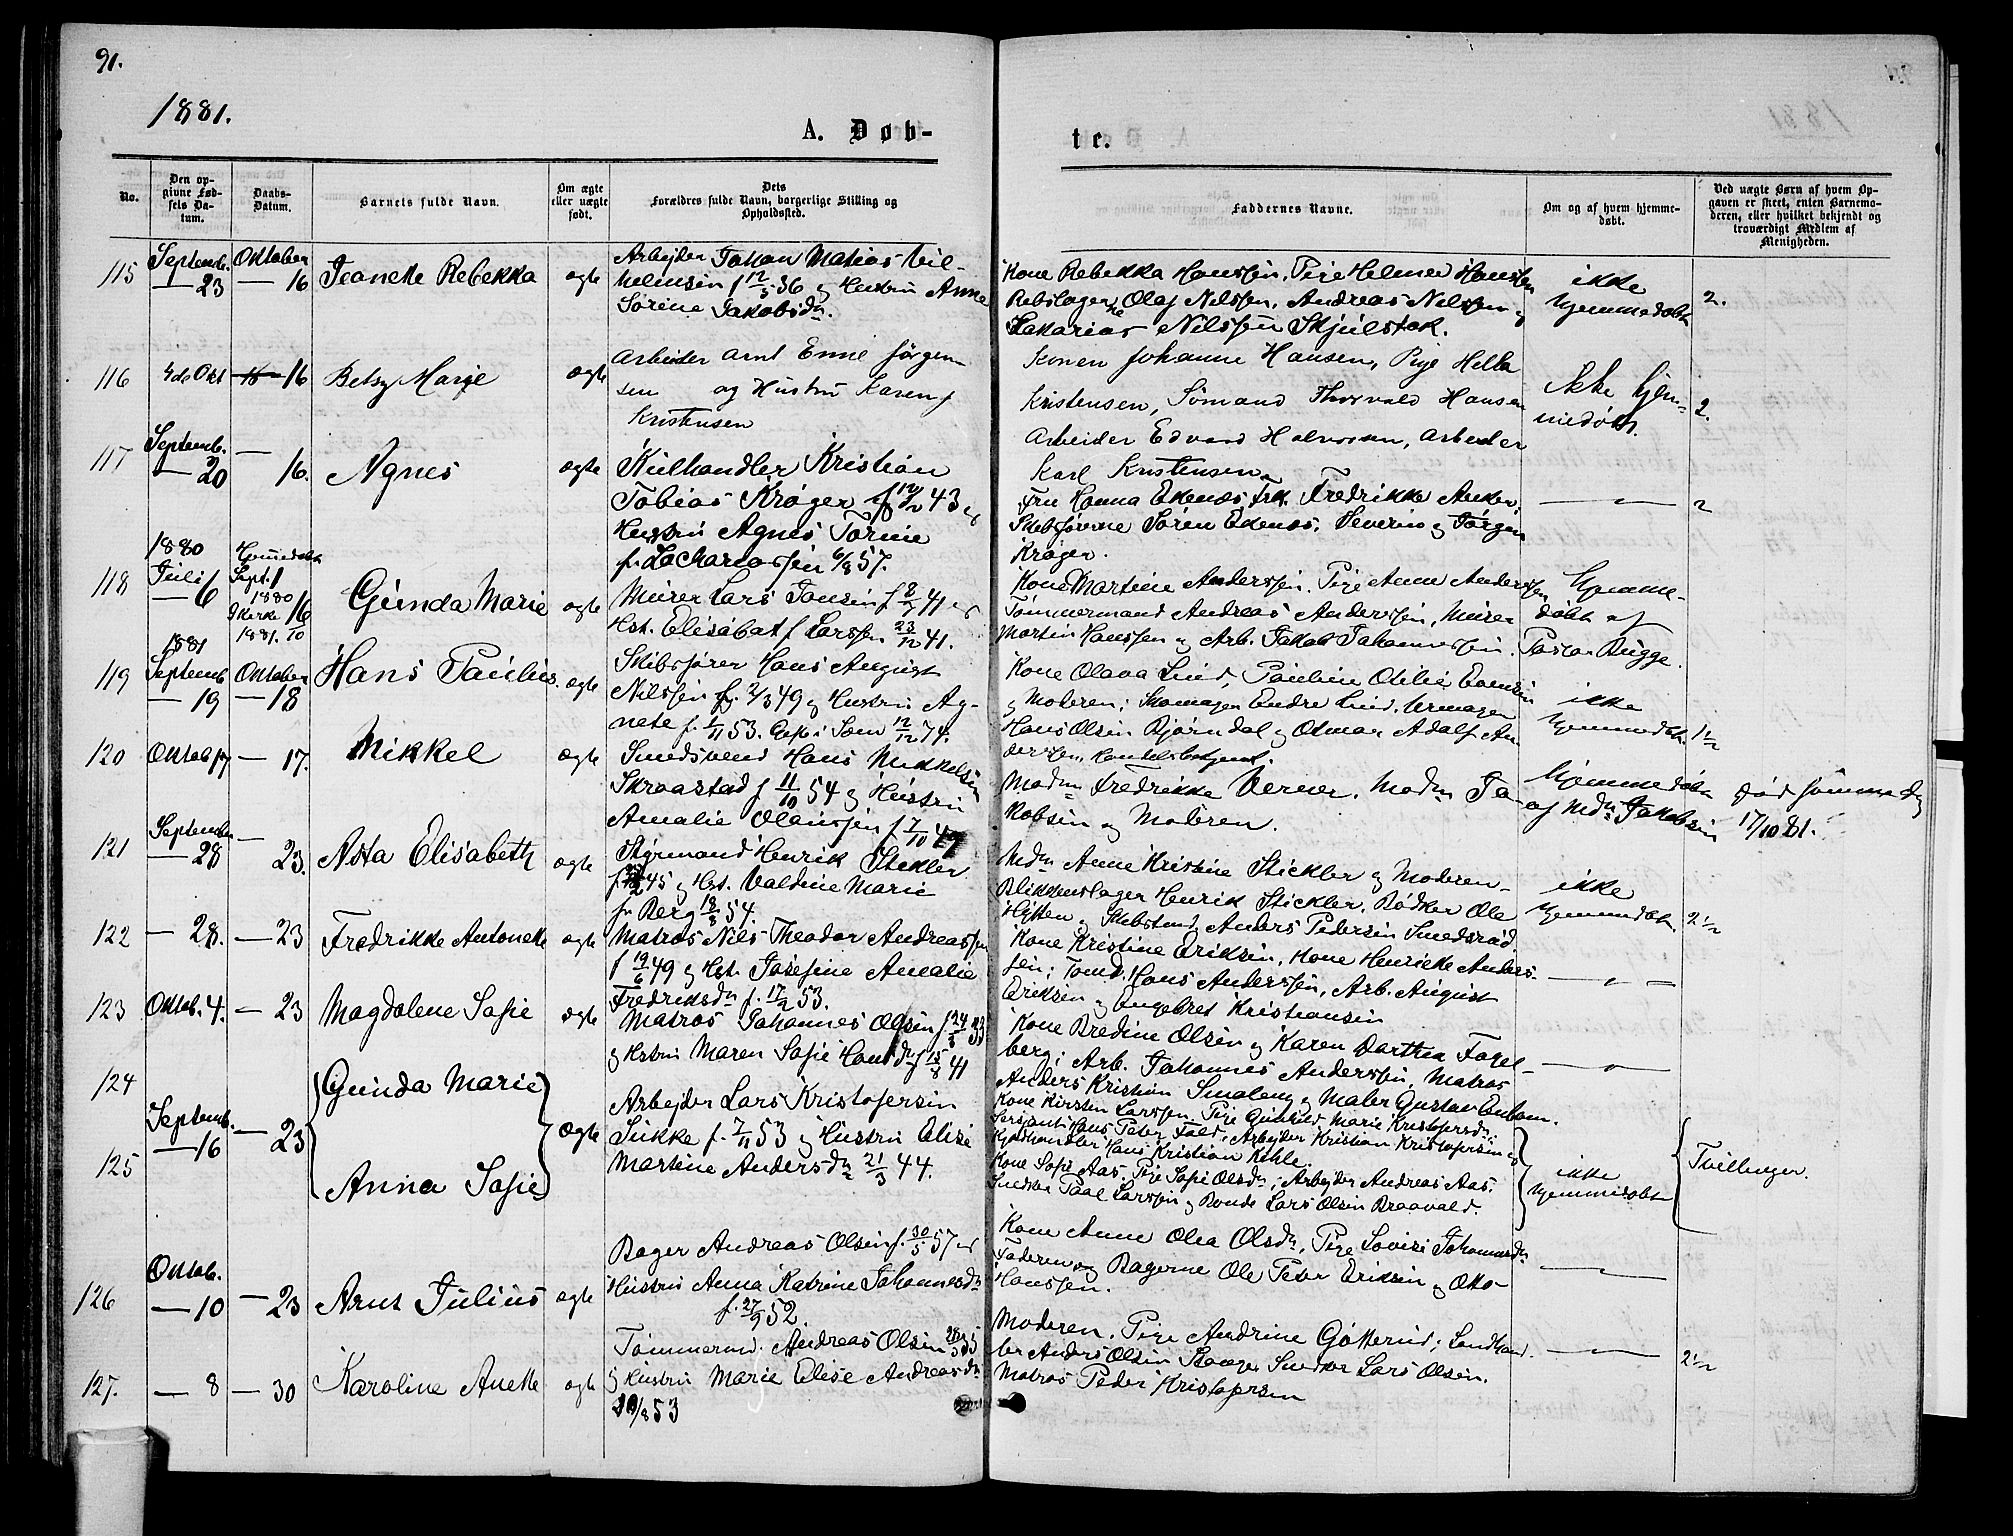 91.
1881.
A. Døb-
te.
No.
Den op-
givne Fød-
sels Da-
tum.
Daabs-
Datum.
Barnets fulde Navn.
Om ægte
eller uægte
født.
Dets
Forældres fulde Navn, borgerlige Stilling og
Opholdssted.
Faddernes Navne.
Om og af hvem hjemme-
døbt.
Ved uægte Børn af hvem Op-
gaven er skeet, enten Barnemo-
deren, eller hvilket bekjendt og
troværdigt Medlem af
Menigheden.
115
Septemb.
— 23
Oktober
— 16
Jeanette Rebekka
ægte
Arbejder Johan Matias Vil-
helmsen f 12/5 36 og Hustru Anne
Sørine Jakobsdr.
Kone Rebekka Hanssen, Pige Helmine Hanssen
Rebslagerne Olaf Nilssen, Andreas Nilssen og
Sakarias Nilssen Skjelstok.
ikke
hjemmedøbt
2.
116
4de Okt
16
Betsy Marie
ægte
Arbeider Arnt Enne Jørgen
sen og Hustru Karen f
Kristensen
Konen Johanne Hansen, Pige Helle
Kristensen, Sømand Thorvald Hansen
Arbeider Edvard Halvorsen, Arbeider
Karl Kristensen
Ikke hjem-
medøbt.
2.
117
Septemb.
— 20
— 16.
Agnes
ægte
Kulhandler Kristian
Tobias Krøger f 12/12 43 og
Hustru Agnes Torine
f. Zachariassen 6/8 57.
Fru Hanna Ekenæs Frk. Fredrikke Anker,
Skibsførerne Søren Ekenæs, Severin og Jørgen
Krøger.
— " —
2
118
1880
Juli
— 6
Hjemmedøbt
Sept. 1
1880
I Kirke 16/10
1881.
Gunda Marie
ægte
Murer Lars Jansen f 8/7 41 og
Hst. Elisabat f Larssen 23/12 41.
Kone Martine Anderssen. Pige Anne Anderssen
Tømmermand Andreas Anderssen, Murer
Martin Hanssen og Arb. Jakob Johannessen.
Hjemme-
døbt af
Pastor Bugge.
119
1881
Septemb
— 19
Oktober
— 18
Hans Paulus.
ægte
Skibsfører Hans August
Nilssen f. 2/8 49 og Hustru Ag-
nete f. 1/11 53. Gift i Søm 12/12 74.
Kone Olava Lind, Pauline Otilie Evensen
og Moderen; Skomager Endre Lind, Urmager
Hans Olsen Bjørndal og Otmar Adolf An-
derssen, Handelsbetjent.
ikke
hjemmedøbt.
1 1/2
120
Oktob 17
— 17.
Mikkel
ægte
Smedsvend Hans Mikkelsen
Skraastad f 11/10 54 og Hustru
Amalie Olaussen f 7/10 49
Madm Fredrikke Verner. Madm Ja-
kobsen og Moderen.
Hjemmedøbt
af Mdm Jakobsen
død samme dag
17/10 81.
121
September
— 28
— 23.
Asta Elisabeth
ægte
Styrmand Henrik Stickler
45 og Hst. Valdine Marie
f. Berg 18/8 54.
Mdm Anne Kristine Stickler og Moderen —
Blikkenslager Henrik Stickler, Bødker Ole
Hytten og Skibstømd Anders Pedersen Smedsrød
ikke
hjemmedøbt
2 1/2
122
— 28.
— 23
Fredrikke Antonette
ægte
Matros Nils Theodor Andreassen
f 19/6 49 og Hst. Josefine Amalie
Fredriksdr f. 17/2 53.
Kone Kristine Eriksen, Kone Henriette Anders-
sen; Tømd. Hans Anderssen, Arb. August
Eriksen og Engebret Kristiansen
— " —
123
Oktob. 4.
— 23
Magdalene Sofie
ægte
Matros Johannes Olsen f 24/3 33
og Hstru Maren Sofie Hansdr f 15/8 41
Kone Bredine Olsen og Karen Dorthea Fagel-
berg; Arb. Johannes Anderssen, Matros
Anders Kristian Smaleng og Maler Gustav Enbom.
— " —
124
Gunda Marie
Septemb.
— 16
— 23
ægte
Arbejder Lars Kristofersen
Sukke f. 7/11 53 og Hustru Elise
Martine Andersdr 21/3 44.
Kone Kirsten Larssen. Pige Gunhild Marie Kristofersdr;
Sersjant Hans Peter Fald, Arbejder Kristian Kristofersen og
Kjødhandler Hans Kristian Kihle.
125
Anna Sofie
Kone Sofie Aas. Pige Sofie Olsdr; Arbejder Andreas Aas.
Snedker Paal Larssen og Bonde Lars Olsen Braavald.
ikke
hjemmedøbt
Tvillinger.
126
Oktob.
— 10
— 23
Arnt Julius
ægte
Bager Andreas Olsen f. 30/5 57 og
Hustru Anna Katrine Johannesdr
f. 27/9 52.
Kone Anne Olea Olsdr, Pige Lovise Johannesdr
Faderen og Bagerne Ole Peter Eriksen og Otto
Hanssen.
— " —
127.
— 8
— 30
Karoline Anette
ægte
Tømmermd. Andreas Olsen 28/3 55
og Hustru Marie Elise Andreasdr
10/8 53
Moderen. Pige Andrine Gøtterud; Landhand-
ler Anders Olsen Snedker Lars Olsen.
Matros Peder Kristofersen
— " —
2 1/2